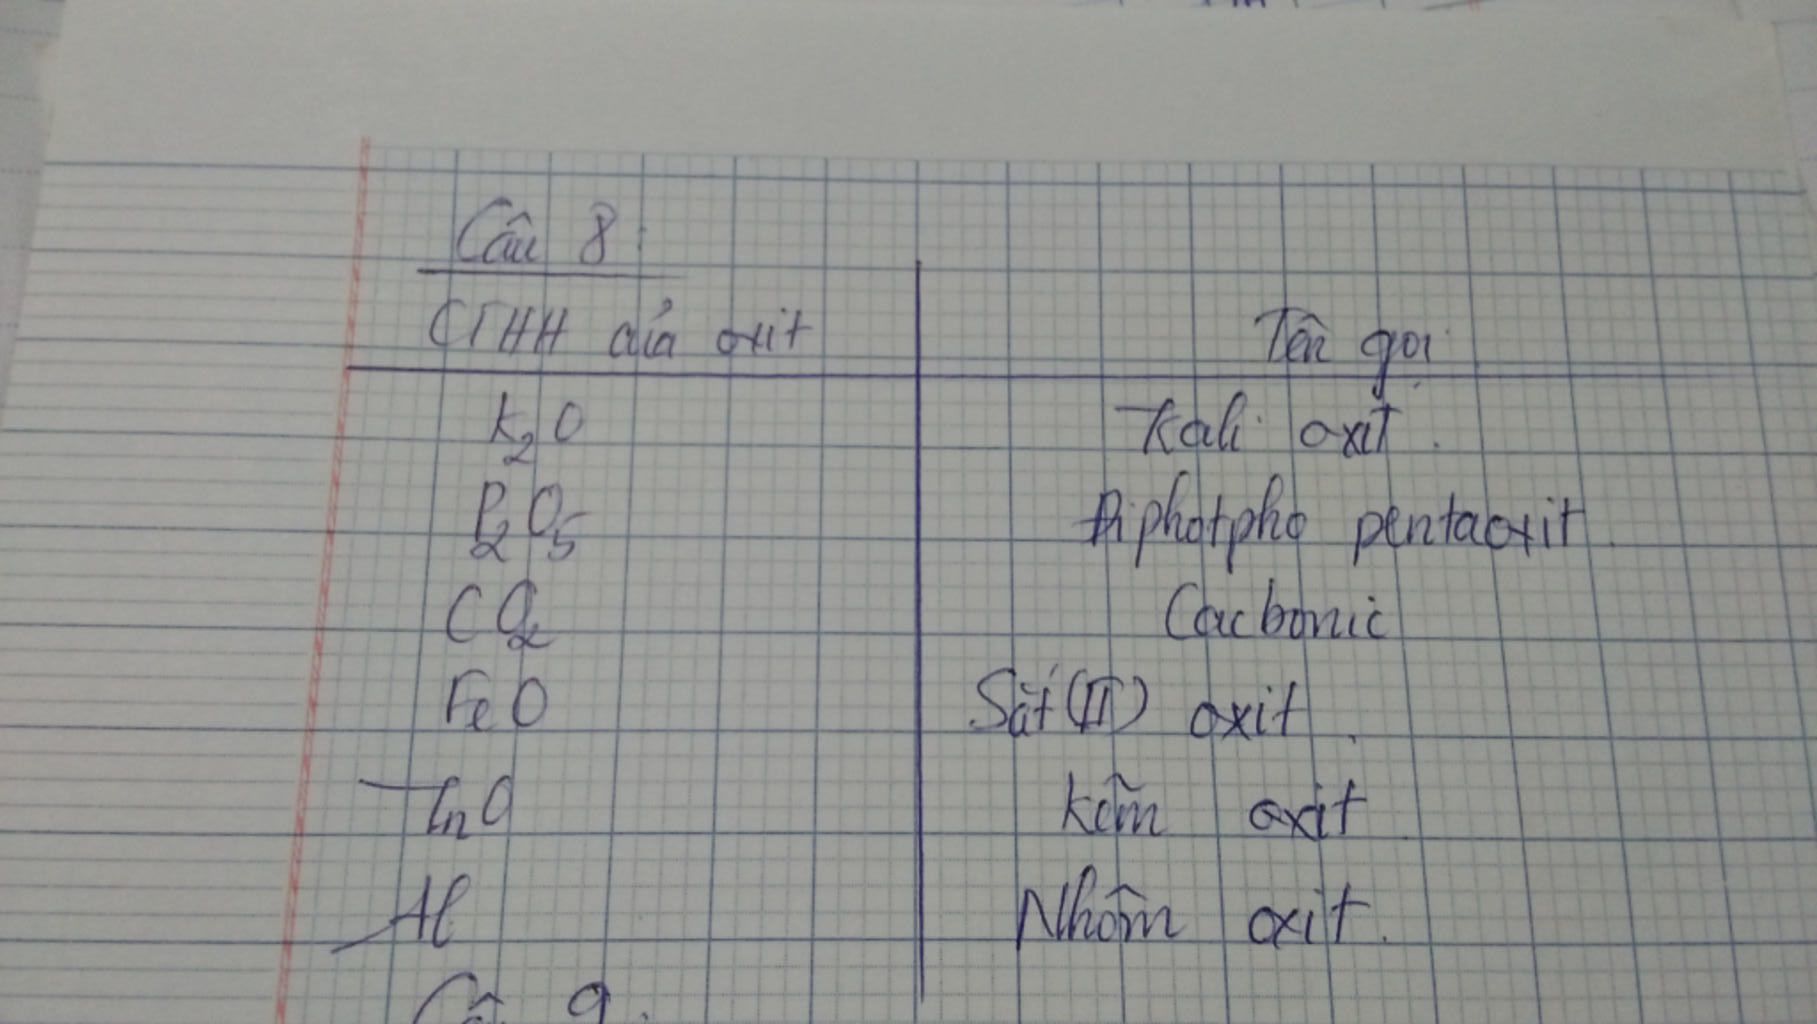 Câu 8:
CTHH của oxit Tên gọi
K2O Kali oxit.
P2O5 Điphotpho pentaoxit.
CO2 Cacbonic
FeO Sắt (II) oxit.
ZnO Kẽm oxit
Al Nhôm oxit.
Câu 9: